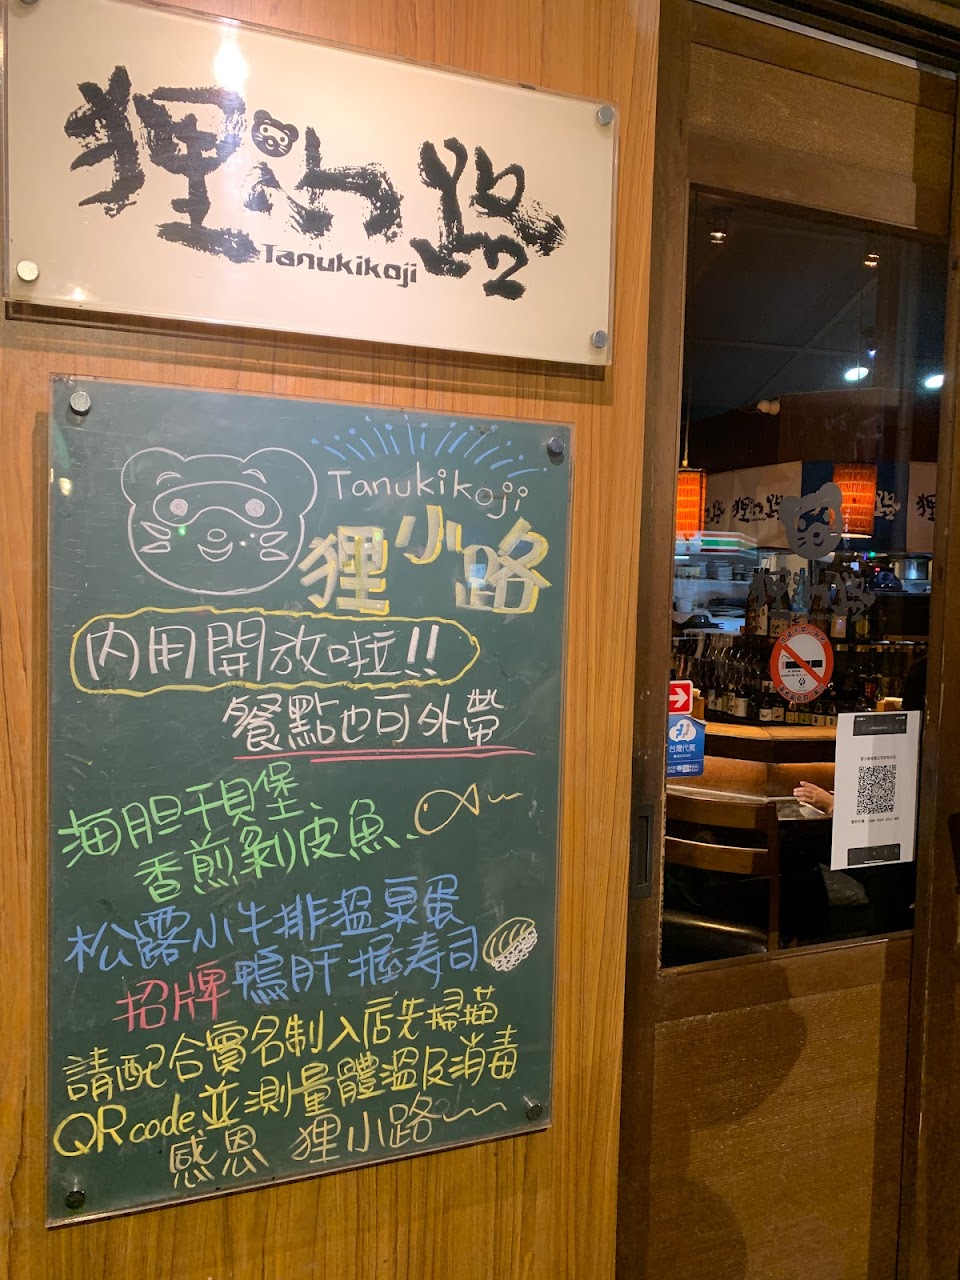 狸小路
Tanukikoji
Tanukikoji
狸小路
內用開放啦!!
餐點也可外帶
海胆干貝堡、
香煎剝皮魚、
松露小牛排溫泉蛋
招牌鴨肝握壽司
請配合實名制入店先掃描
QR code 並測量體溫及消毒
感恩 狸小路
狸小路
台灣代駕